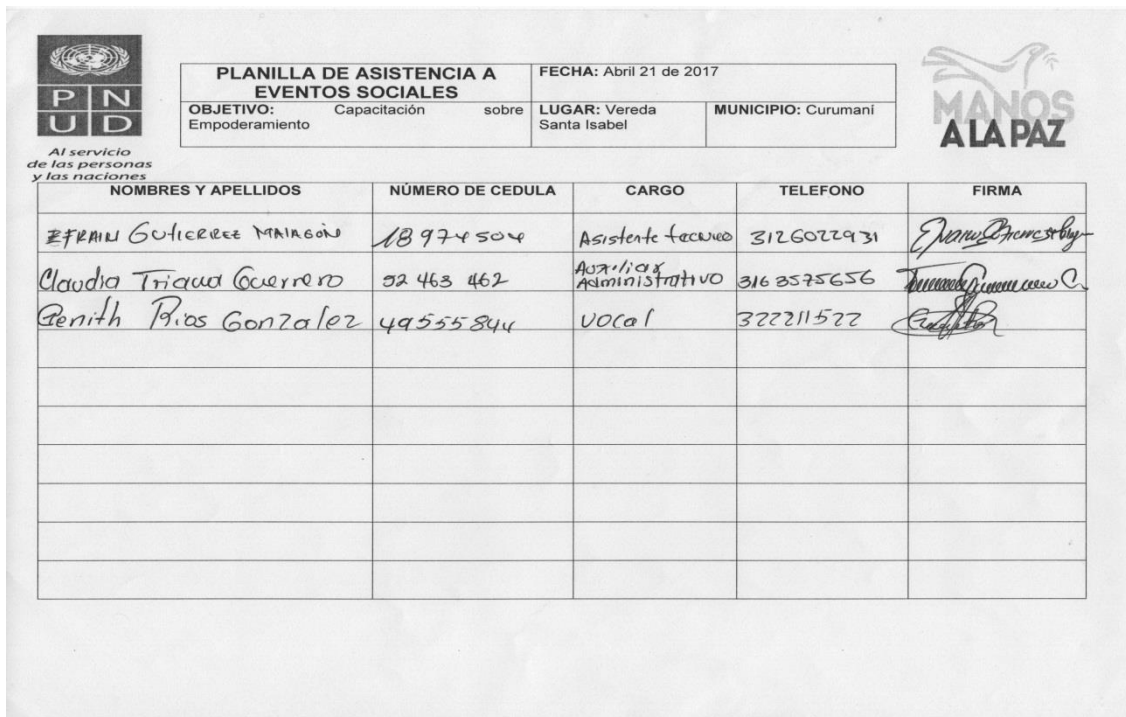 PNUD
Al servicio
de las personas
y las naciones
PLANILLA DE ASISTENCIA A
EVENTOS SOCIALES
FECHA: Abril 21 de 2017
OBJETIVO: Capacitación sobre
Empoderamiento
LUGAR: Vereda
Santa Isabel
MUNICIPIO: Curumaní
MANOS
A LA PAZ
NOMBRES Y APELLIDOS NÚMERO DE CEDULA CARGO TELEFONO FIRMA
EFRAIN GUTIERREZ MALAGON 18974504 Asistente tecnico 3126022931
Claudia Triana Guerrero 52 463 462 Auxiliar Administrativo 316 3575656
Cenith Rios Gonzalez 49555844 vocal 322211522